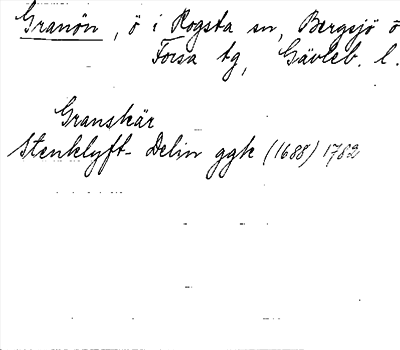 Granön, ö i Rogsta sn, Bergsjö o
Forsa tg, Gävleb. l.
Granskär
Stenklyft- Delin ggk (1688) 1782